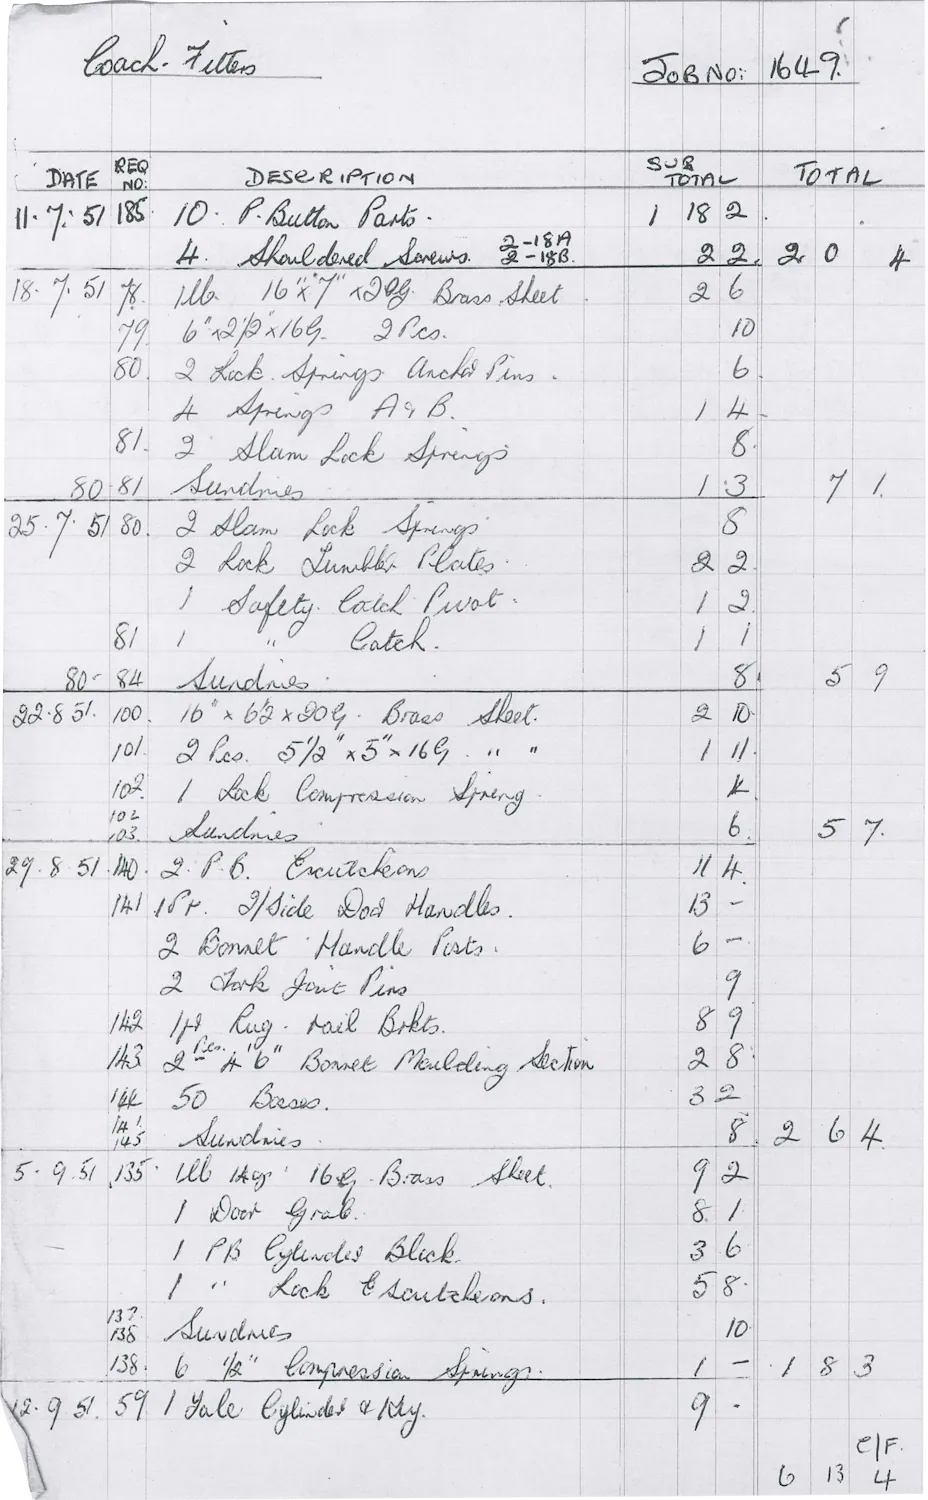 Coach-Fitters JOB NO: 1649.
DATE REQ NO: DESCRIPTION SUB TOTAL TOTAL
11·7·51 185 10. P. Button Parts. 1 18 2.
4. Shouldered Screws. 2-18A 2-18B. 2 2. 2 0 4
18·7·51 78. 1lb 16"x7"x20G. Brass Sheet 2 6
79 6"x2 1/2"x16G. 2 Pcs. 10
80. 2 Lock Springs Anchor Pins. 6.
4 Springs A & B. 1 4
81. 2 Slam Lock Springs 8.
80-81 Sundries 1 3 7 1.
25·7·51 80. 2 Slam Lock Springs 8
2 Lock Tumbler Plates. 2 2.
1 Safety Catch Pivot. 1 2
81 1 " Catch. 1 1
80-84 Sundries. 8 5 9
22·8 51. 100. 16" x 6 1/2 x 20G. Brass Sheet. 2 10
101. 2 Pcs. 5 1/2" x 5" x 16G. " " 1 11.
102. 1 Lock Compression Spring. 4.
102 103. Sundries 6. 5 7.
29·8·51. 140. 2. P.B. Escutcheons 11 4.
141 1 Pr. D/Side Door Handles. 13 -
2 Bonnet Handle Posts. 6 -
2 Fork Joint Pins 9
142 1 pr Rug-rail Brkts. 8 9
143 2 Pcs. 4'6" Bonnet Moulding Section 2 8
144 50 Bosses. 3 2
141. 145 Sundries. 8. 2 6 4.
5·9·51 135. 1lb 14oz 16G. Brass Sheet. 9 2
1 Door Grab. 8. 1
1 PB Cylinder Block. 3 6
1 " Lock Escutcheons. 5 8.
137. 138 Sundries 10
138. 6 1/2" Compression Springs. 1 - 1 8 3
12·9 51. 59 1 Yale Cylinder & Key. 9 ·
C/F.
6 13 4